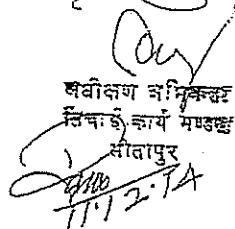 अधीक्षण अभियन्ता
सिंचाई कार्य मण्डल
सीतापुर
11.12.14